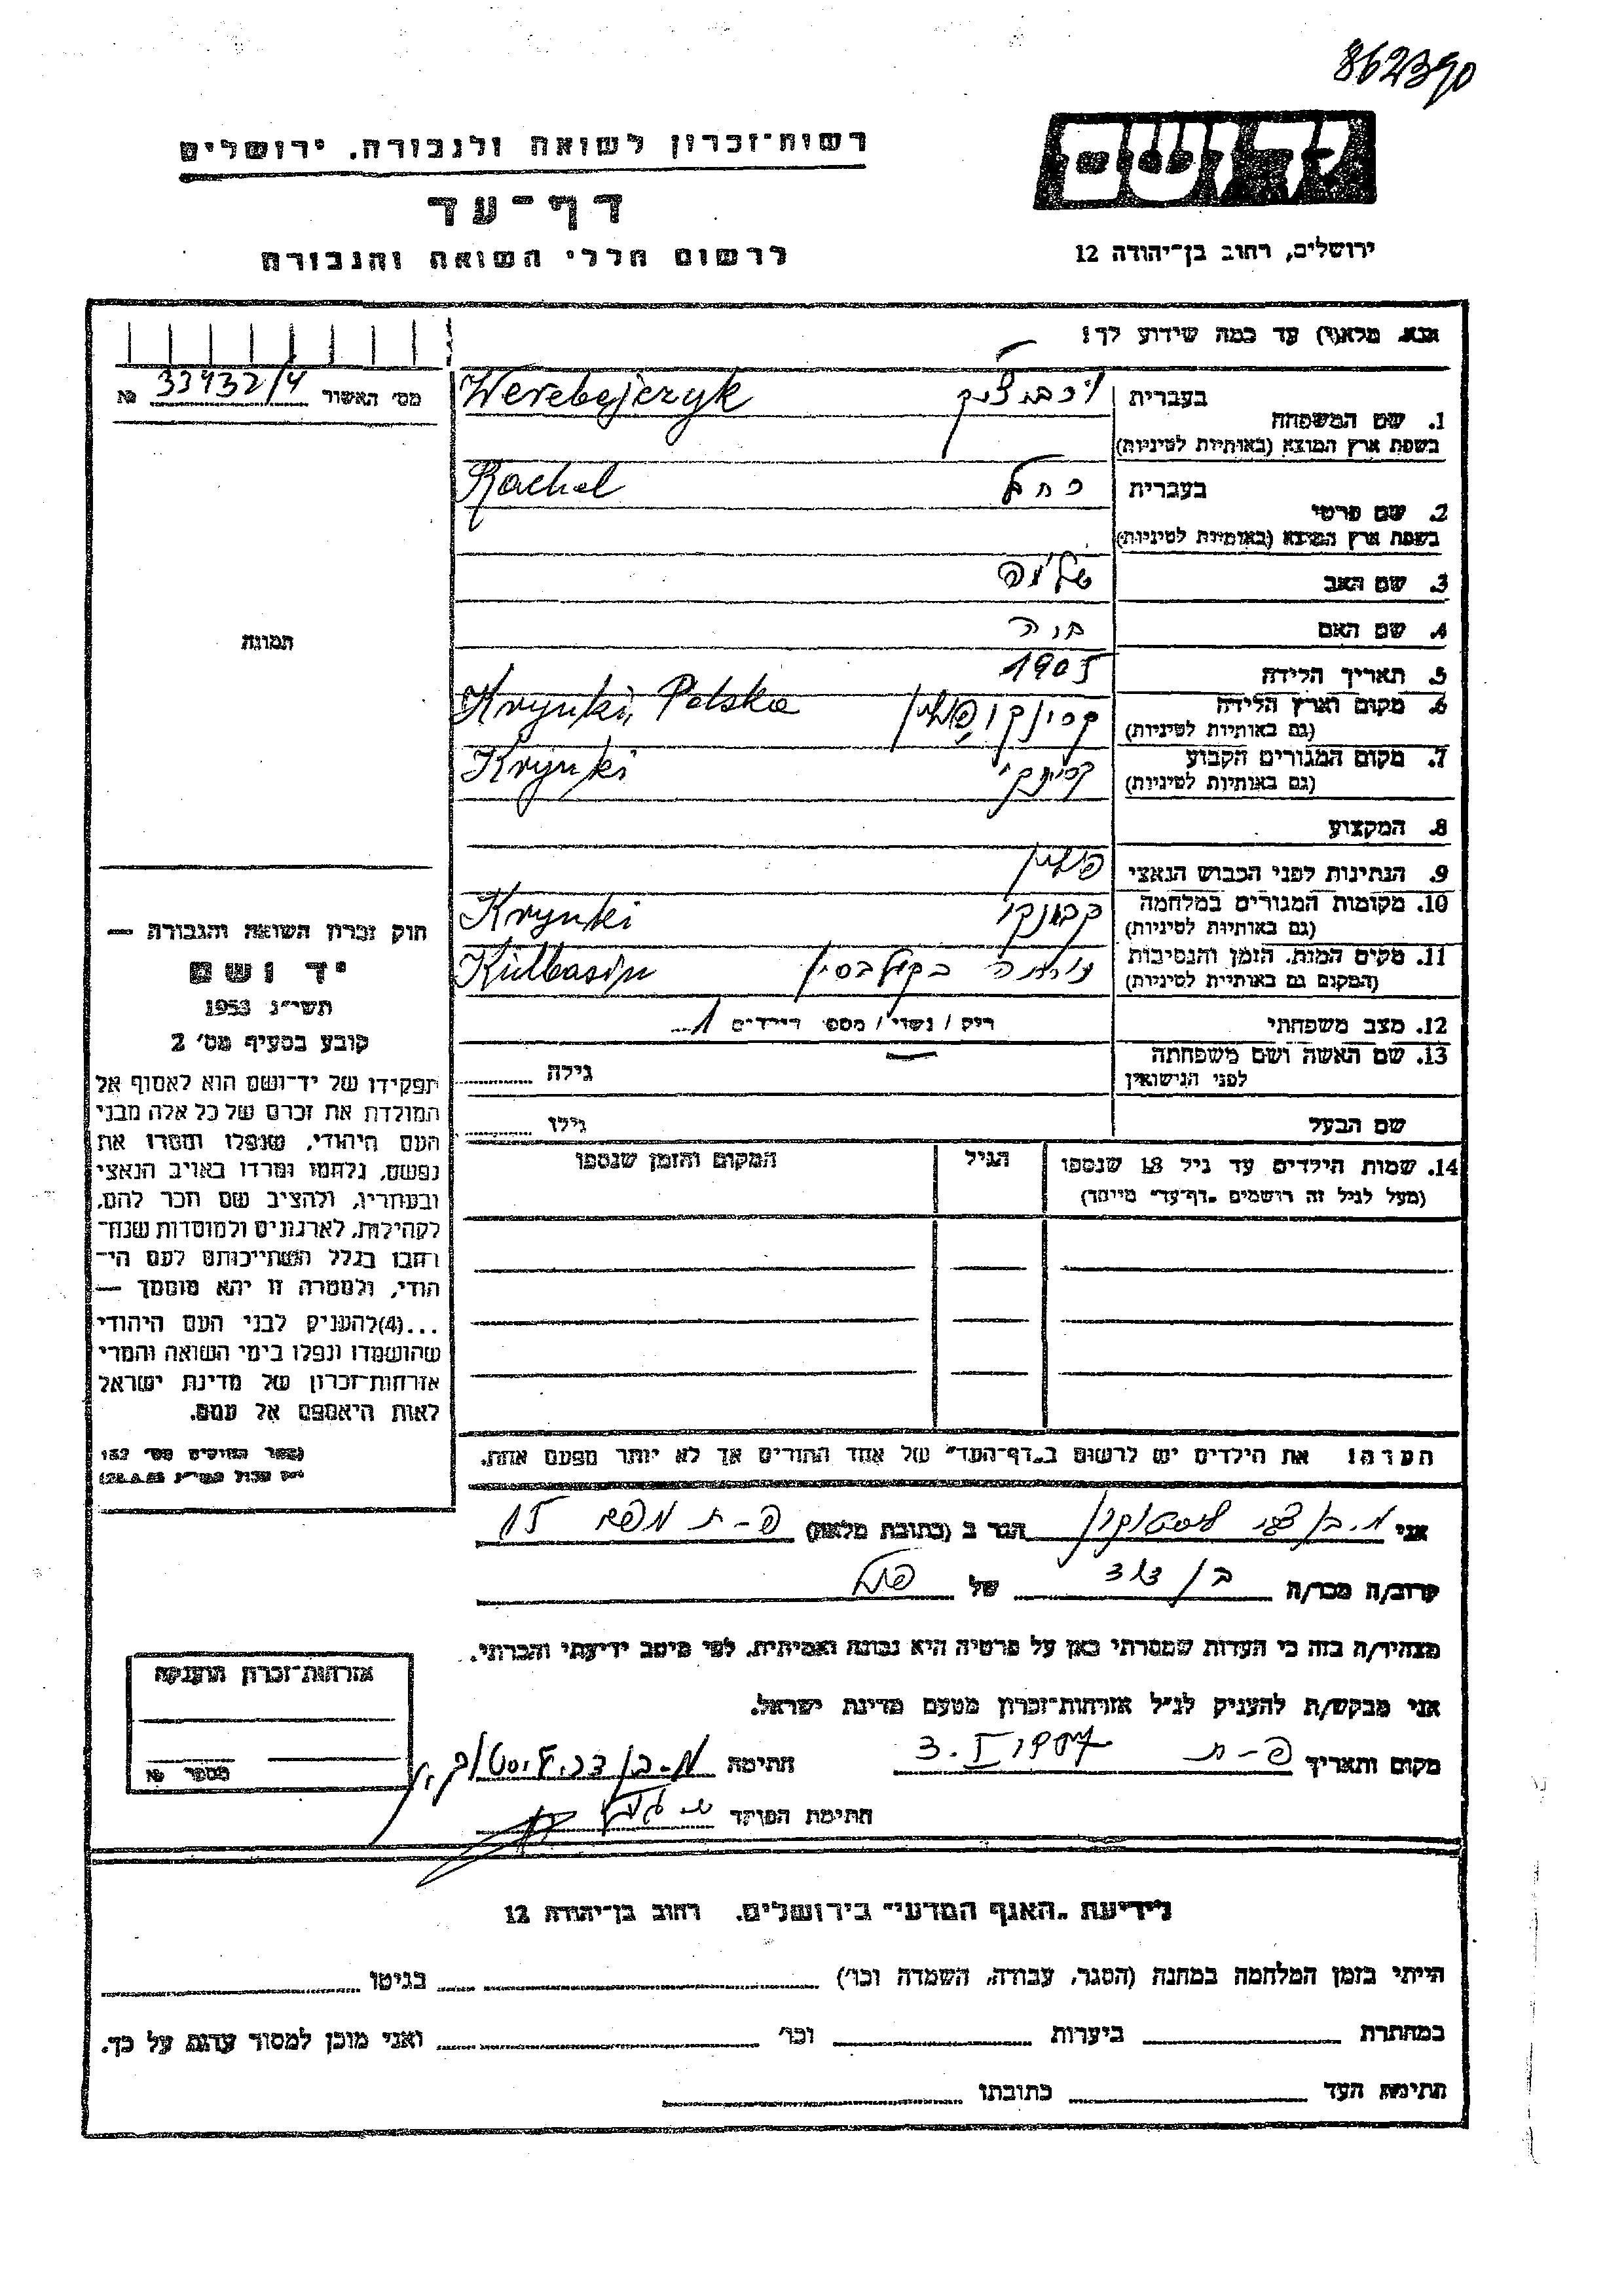 862390
רשות-זכרון לשואה ולגבורה. ירושלים
יד ושם
דף-עד
לרשום חללי השואה והגבורה
ירושלים, רחוב בן-יהודה 12
אנא, מלא(י) עד כמה שידוע לך!
מס' האשור 33432/4 №
1. שם המשפחה
בעברית
Werebejczyk
בשפת ארץ המוצא (באותיות לטיניות)
2. שם פרטי
בעברית רחל
Rachel
בשפת ארץ המוצא (באותיות לטיניות)
3. שם האב שלמה
4. שם האם חנה
5. תאריך הלידה 1905
6. מקום וארץ הלידה קרינקי פולין Krynki, Polska
(גם באותיות לטיניות)
7. מקום המגורים הקבוע קרינקי Krynki
(גם באותיות לטיניות)
8. המקצוע
9. הנתינות לפני הכבוש הנאצי פולין
10. מקומות המגורים במלחמה קרינקי Krynki
(גם באותיות לטיניות)
11. מקום המות. הזמן והנסיבות Kulbasin
(המקום גם באותיות לטיניות)
12. מצב משפחתי רוק / נשוי / מספר הילדים 1
13. שם האשה ושם משפחתה
לפני הנישואין
גילה
שם הבעל
גילו
14. שמות הילדים עד גיל 18 שנספו
(מעל לגיל זה רושמים "דף-עד" מיוחד)
הגיל
המקום והזמן שנספו
הערה! את הילדים יש לרשום ב"דף-העד" של אחד ההורים אך לא יותר מפעם אחת.
תמונה
חוק זכרון השואה והגבורה —
יד ושם
תשי"ג 1953
קובע בסעיף מס' 2
תפקידו של יד-ושם הוא לאסוף אל
המולדת את זכרם של כל אלה מבני
העם היהודי, שנפלו ומסרו את
נפשם, נלחמו ומרדו באויב הנאצי
ובעוזריו, ולהציב שם וזכר להם,
לקהילות, לארגונים ולמוסדות שנח-
רבו בגלל השתייכותם לעם הי-
הודי, ולמטרה זו יהא מוסמך —
...(4)להעניק לבני העם היהודי
שהושמדו ונפלו בימי השואה והמרי
אזרחות-זכרון של מדינת ישראל
לאות היאספם אל עמם.
(ספר החוקים מס' 132
אני מ. בן צבי הגר ב (כתובת מלאה) פ-ת 15
קרוב/ה מכר/ה בן דוד של
מצהיר/ה בזה כי העדות שמסרתי כאן על פרטיה היא נכונה ואמיתית, לפי מיטב ידיעתי והכרתי.
אני מבקש/ת להעניק לנ"ל אזרחות-זכרון מטעם מדינת ישראל.
מקום ותאריך פ-ת 3.I 1957 חתימה
חתימת הפוקד
אזרחות-זכרון הוענקה
מספר №
לידיעת "האגף המדעי" בירושלים. רחוב בן-יהודה 12
הייתי בזמן המלחמה במחנה (הסגר, עבודה, השמדה וכו') בגיטו
במחתרת ביערות וכו' ואני מוכן למסור עדות על כך.
חתימת העד כתובתו